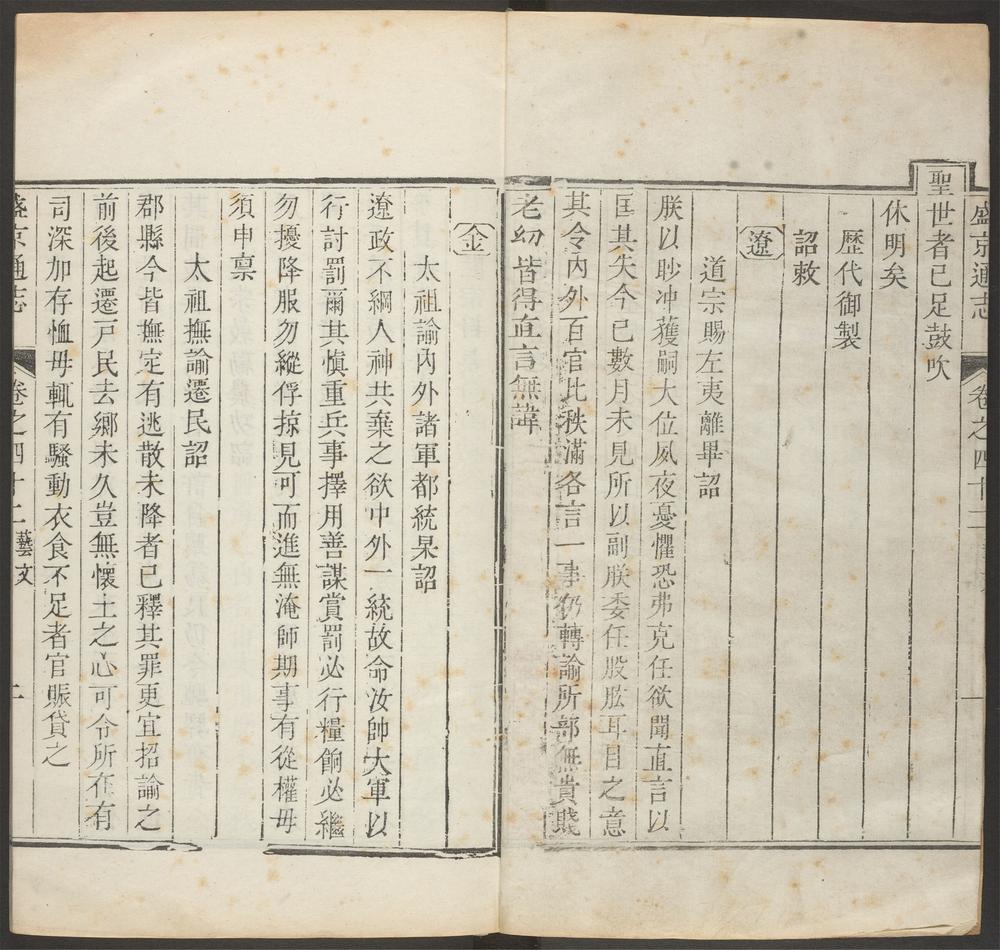 盛京通志 卷之四十二 一
聖世者已足鼓吹
休明矣
歷代御製
詔敕
遼
道宗賜左夷離畢詔
朕以眇冲獲嗣大位夙夜憂懼恐弗克任欲聞直言以
匡其失今已數月未見所以副朕委任股肱耳目之意
其令內外百官比秩滿各言一事仍轉諭所部無貴賤
老幼皆得直言無諱
金
太祖諭內外諸軍都統杲詔
遼政不綱人神共棄之欲中外一統故命汝帥大軍以
行討罰爾其慎重兵事擇用善謀賞罰必行糧餉必繼
勿擾降服勿縱俘掠見可而進無淹師期事有從權毋
須申稟
太祖撫諭遷民詔
郡縣今皆撫定有逃散未降者已釋其罪更宜招諭之
前後起遷戸民去鄉未久豈無懷土之心可令所在有
司深加存恤毋輒有騷動衣食不足者官賑貸之
盛京通志 卷之四十二 藝文 二